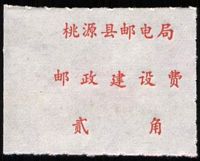 桃源县邮电局
邮政建设费
贰角